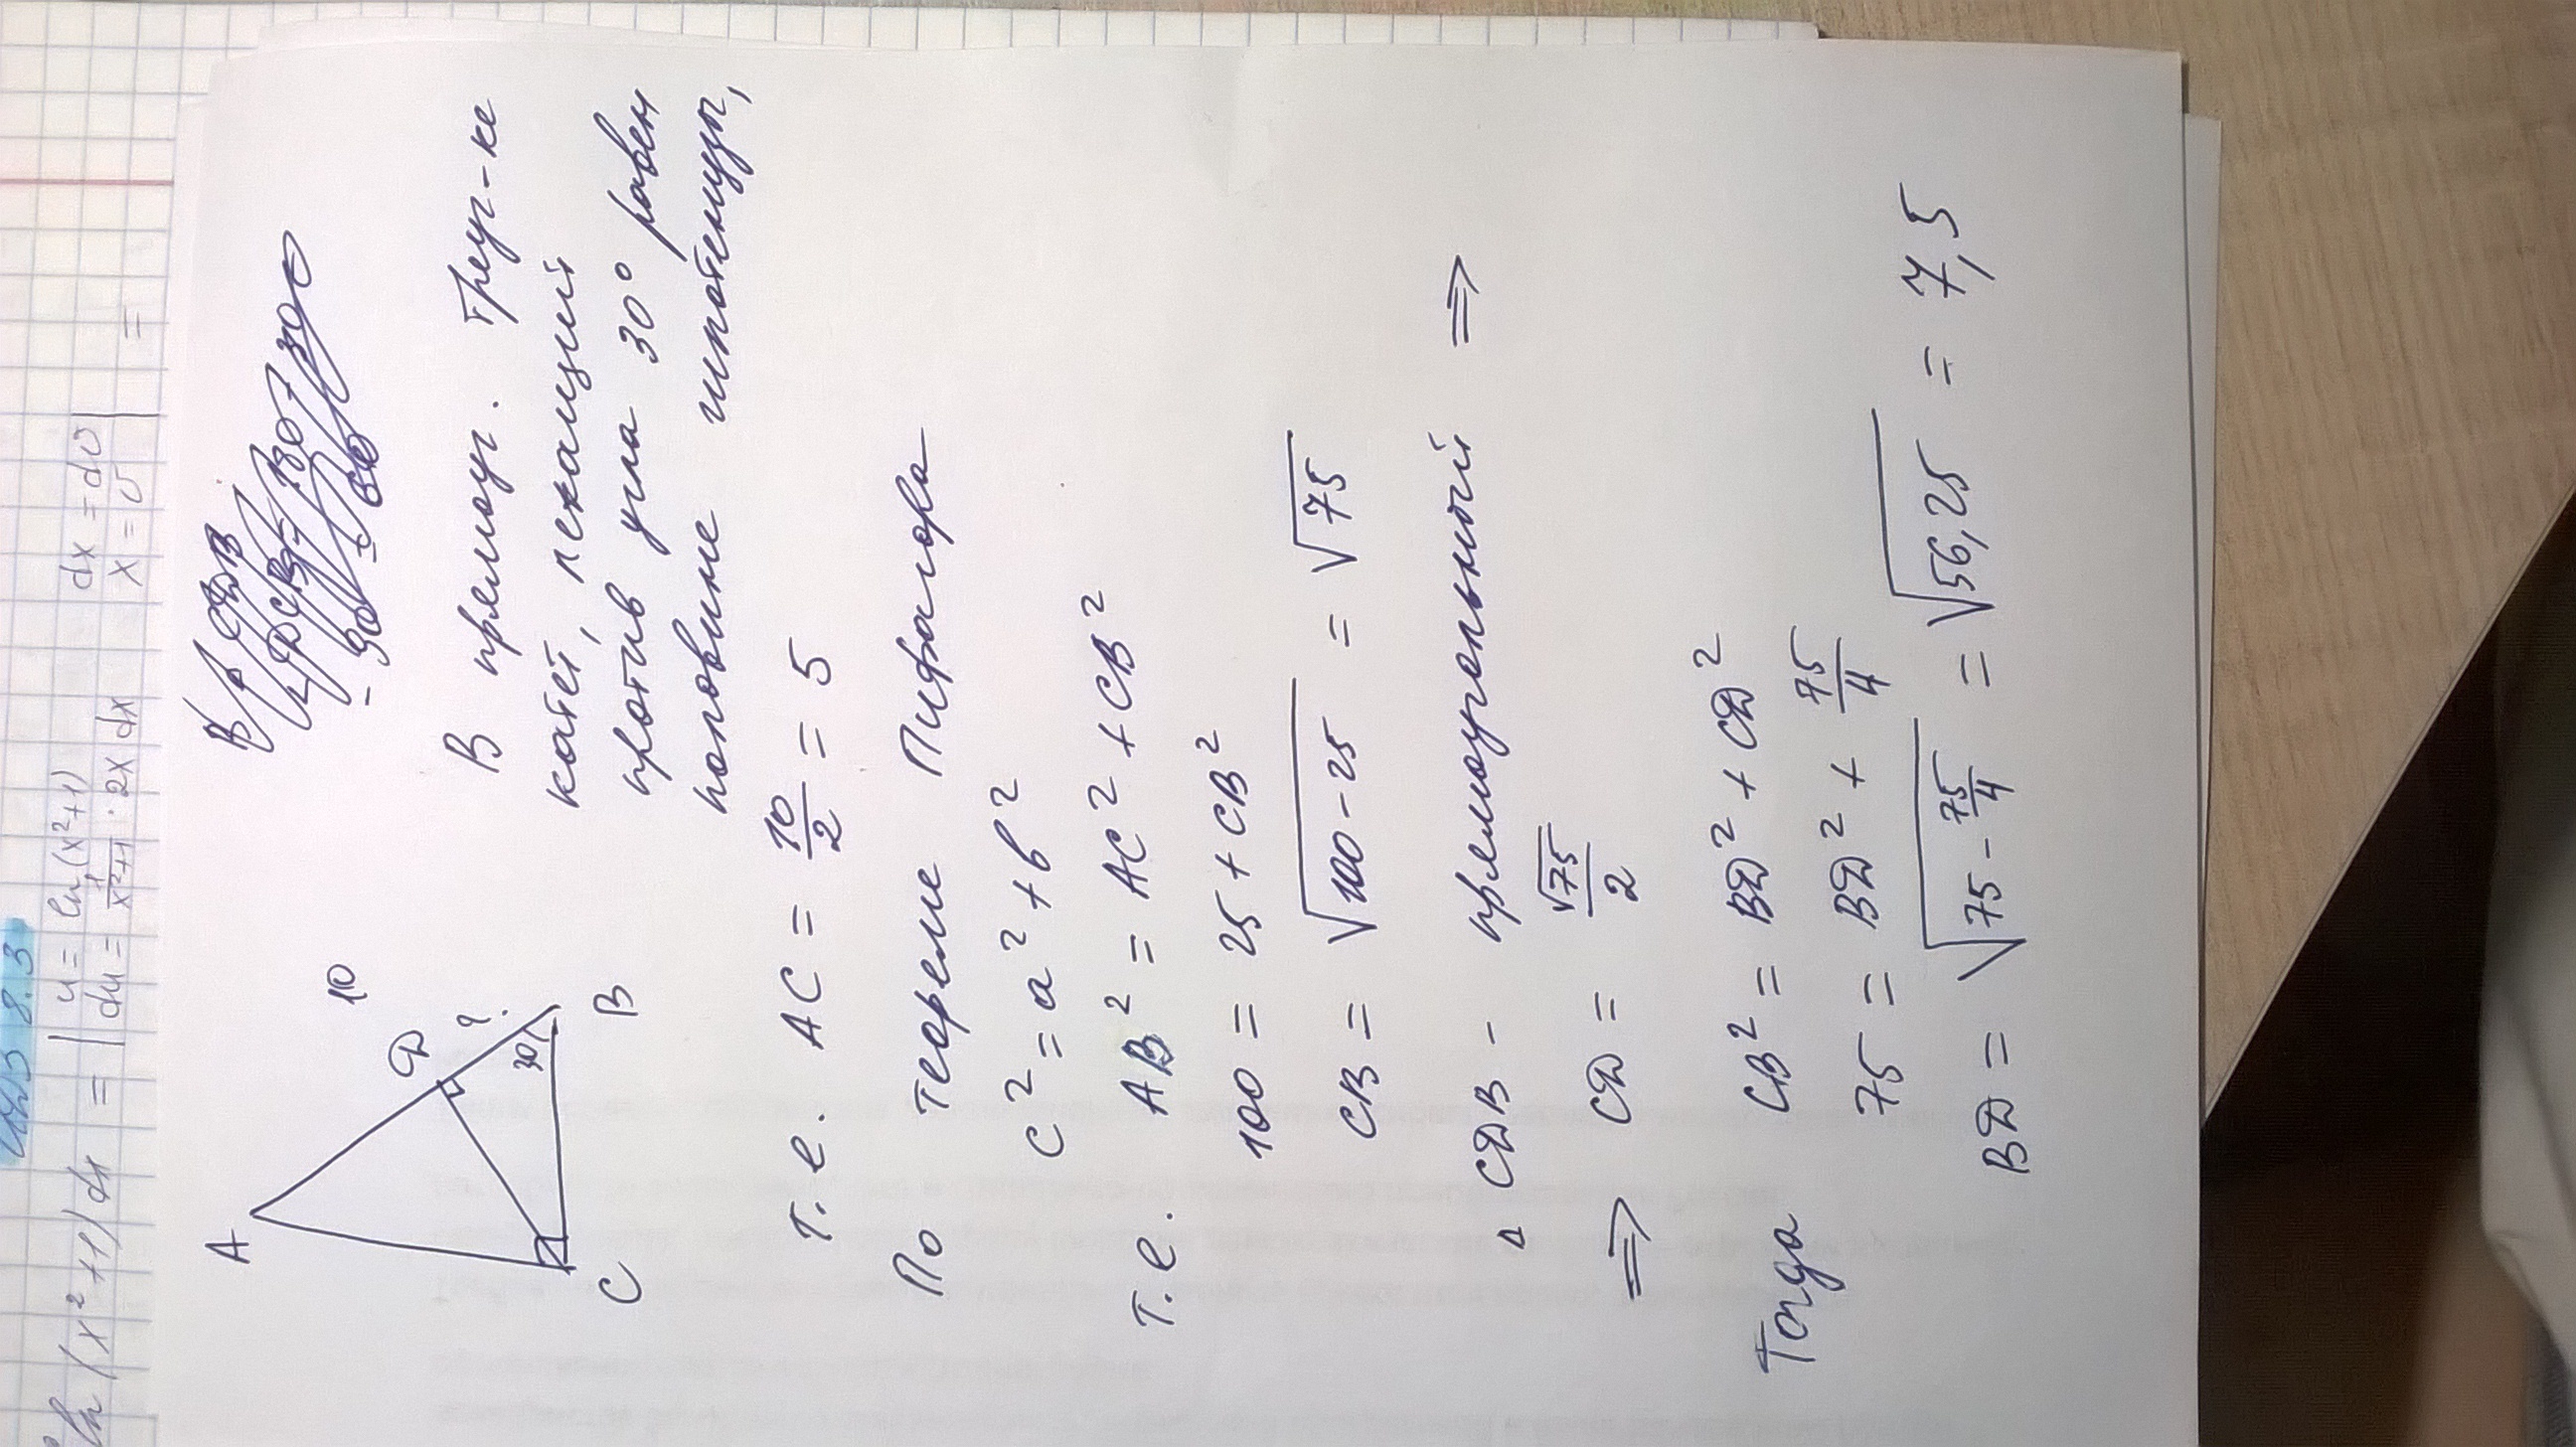 8.3
ln(x²+1)dx = | u = ln(x²+1) dx = dv
du = 1/(x²+1) · 2x dx x = v | =
A
10
D
?
30
C
B
В прямоуг. треуг-ке
катет, лежащий
против угла 30° равен
половине гипотенузы,
т. е. AC = 10/2 = 5
По теореме Пифагора
c² = a² + b²
т. е. AB² = AC² + CB²
100 = 25 + CB²
CB = √(100-25) = √75
Δ CDB - прямоугольный ⇒
⇒ CD = √75/2
Тогда CB² = BD² + CD²
75 = BD² + 75/4
BD = √(75 - 75/4) = √56,25 = 7,5